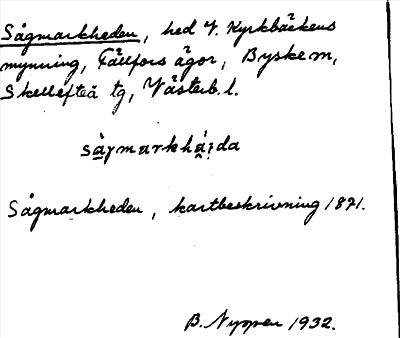 Sågmarkheden, hed V. Kyrkbäckens
mynning, Fällfors ägor, Byske sn,
Skellefteå tg, Västerb. l.
Sågmarkheden, kartbeskrivning 1871.
B. Nyman 1932.